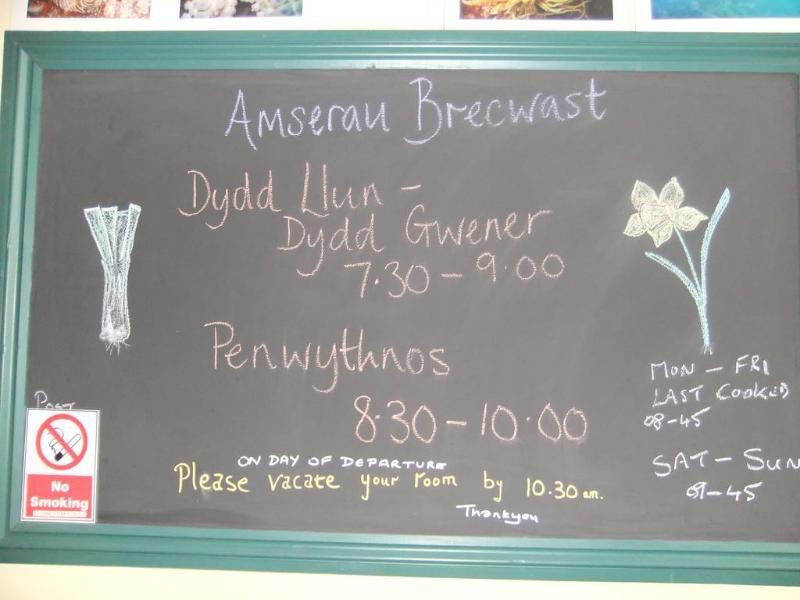 Amserau Brecwast
Dydd Llun -
Dydd Gwener
7.30 - 9.00
Penwythnos
8.30 - 10.00
ON DAY OF DEPARTURE
Please vacate your room by 10.30 am.
Thankyou
MON - FRI
LAST COOKED
08-45
SAT - SUN
09-45
No
Smoking